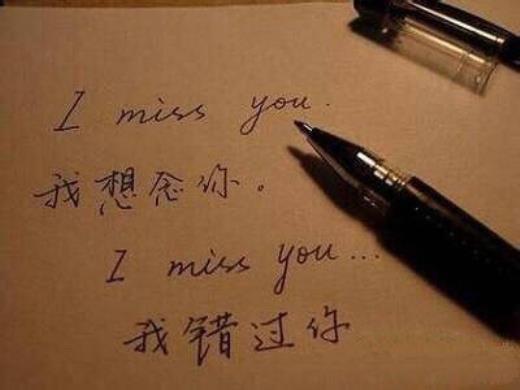 I miss you.
我想念你。
I miss you...
我错过你